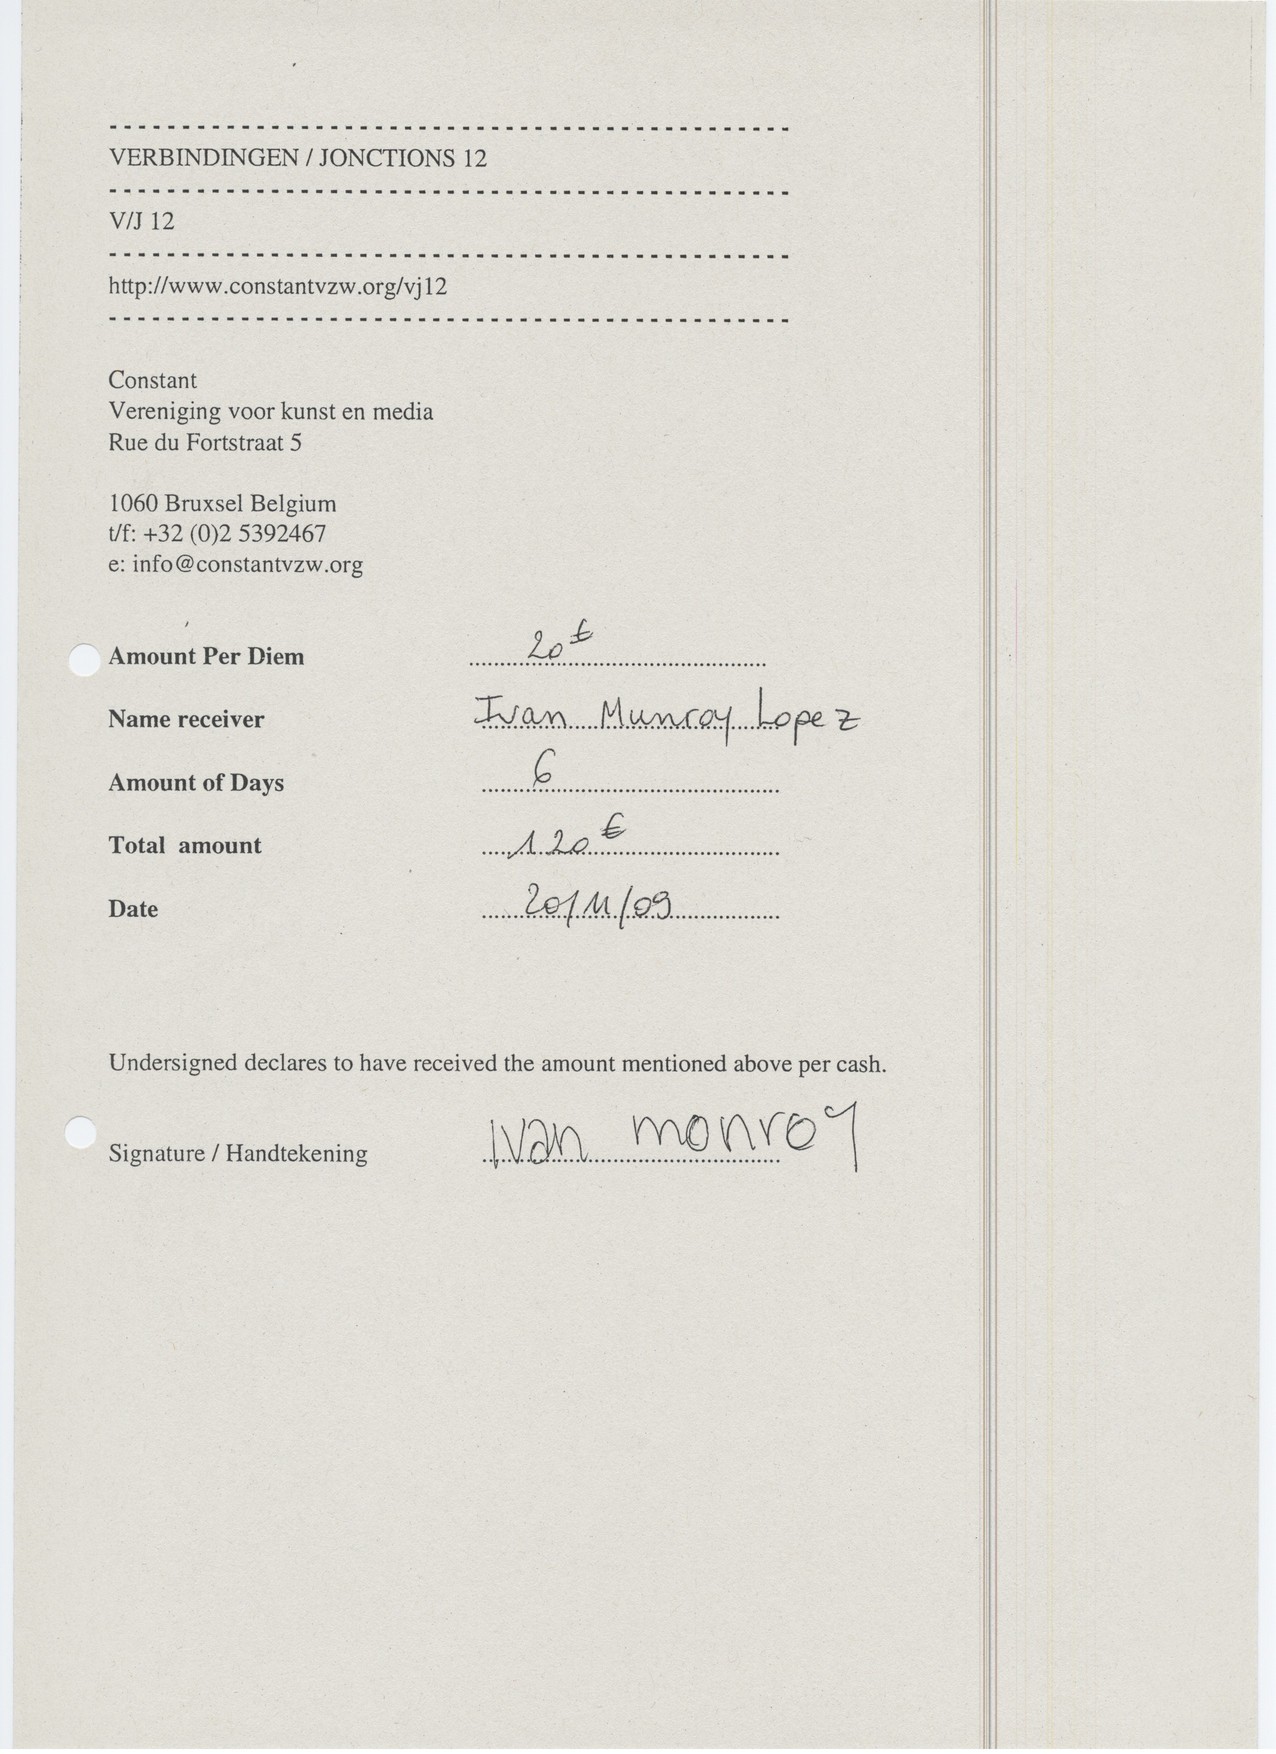 VERBINDINGEN / JONCTIONS 12
V/J 12
http://www.constantvzw.org/vj12
Constant
Vereniging voor kunst en media
Rue du Fortstraat 5
1060 Bruxsel Belgium
t/f: +32 (0)2 5392467
e: info@constantvzw.org
Amount Per Diem 20€
Name receiver Ivan Munroy Lopez
Amount of Days 6
Total amount 120€
Date 20/11/09
Undersigned declares to have received the amount mentioned above per cash.
Signature / Handtekening Ivan monroy